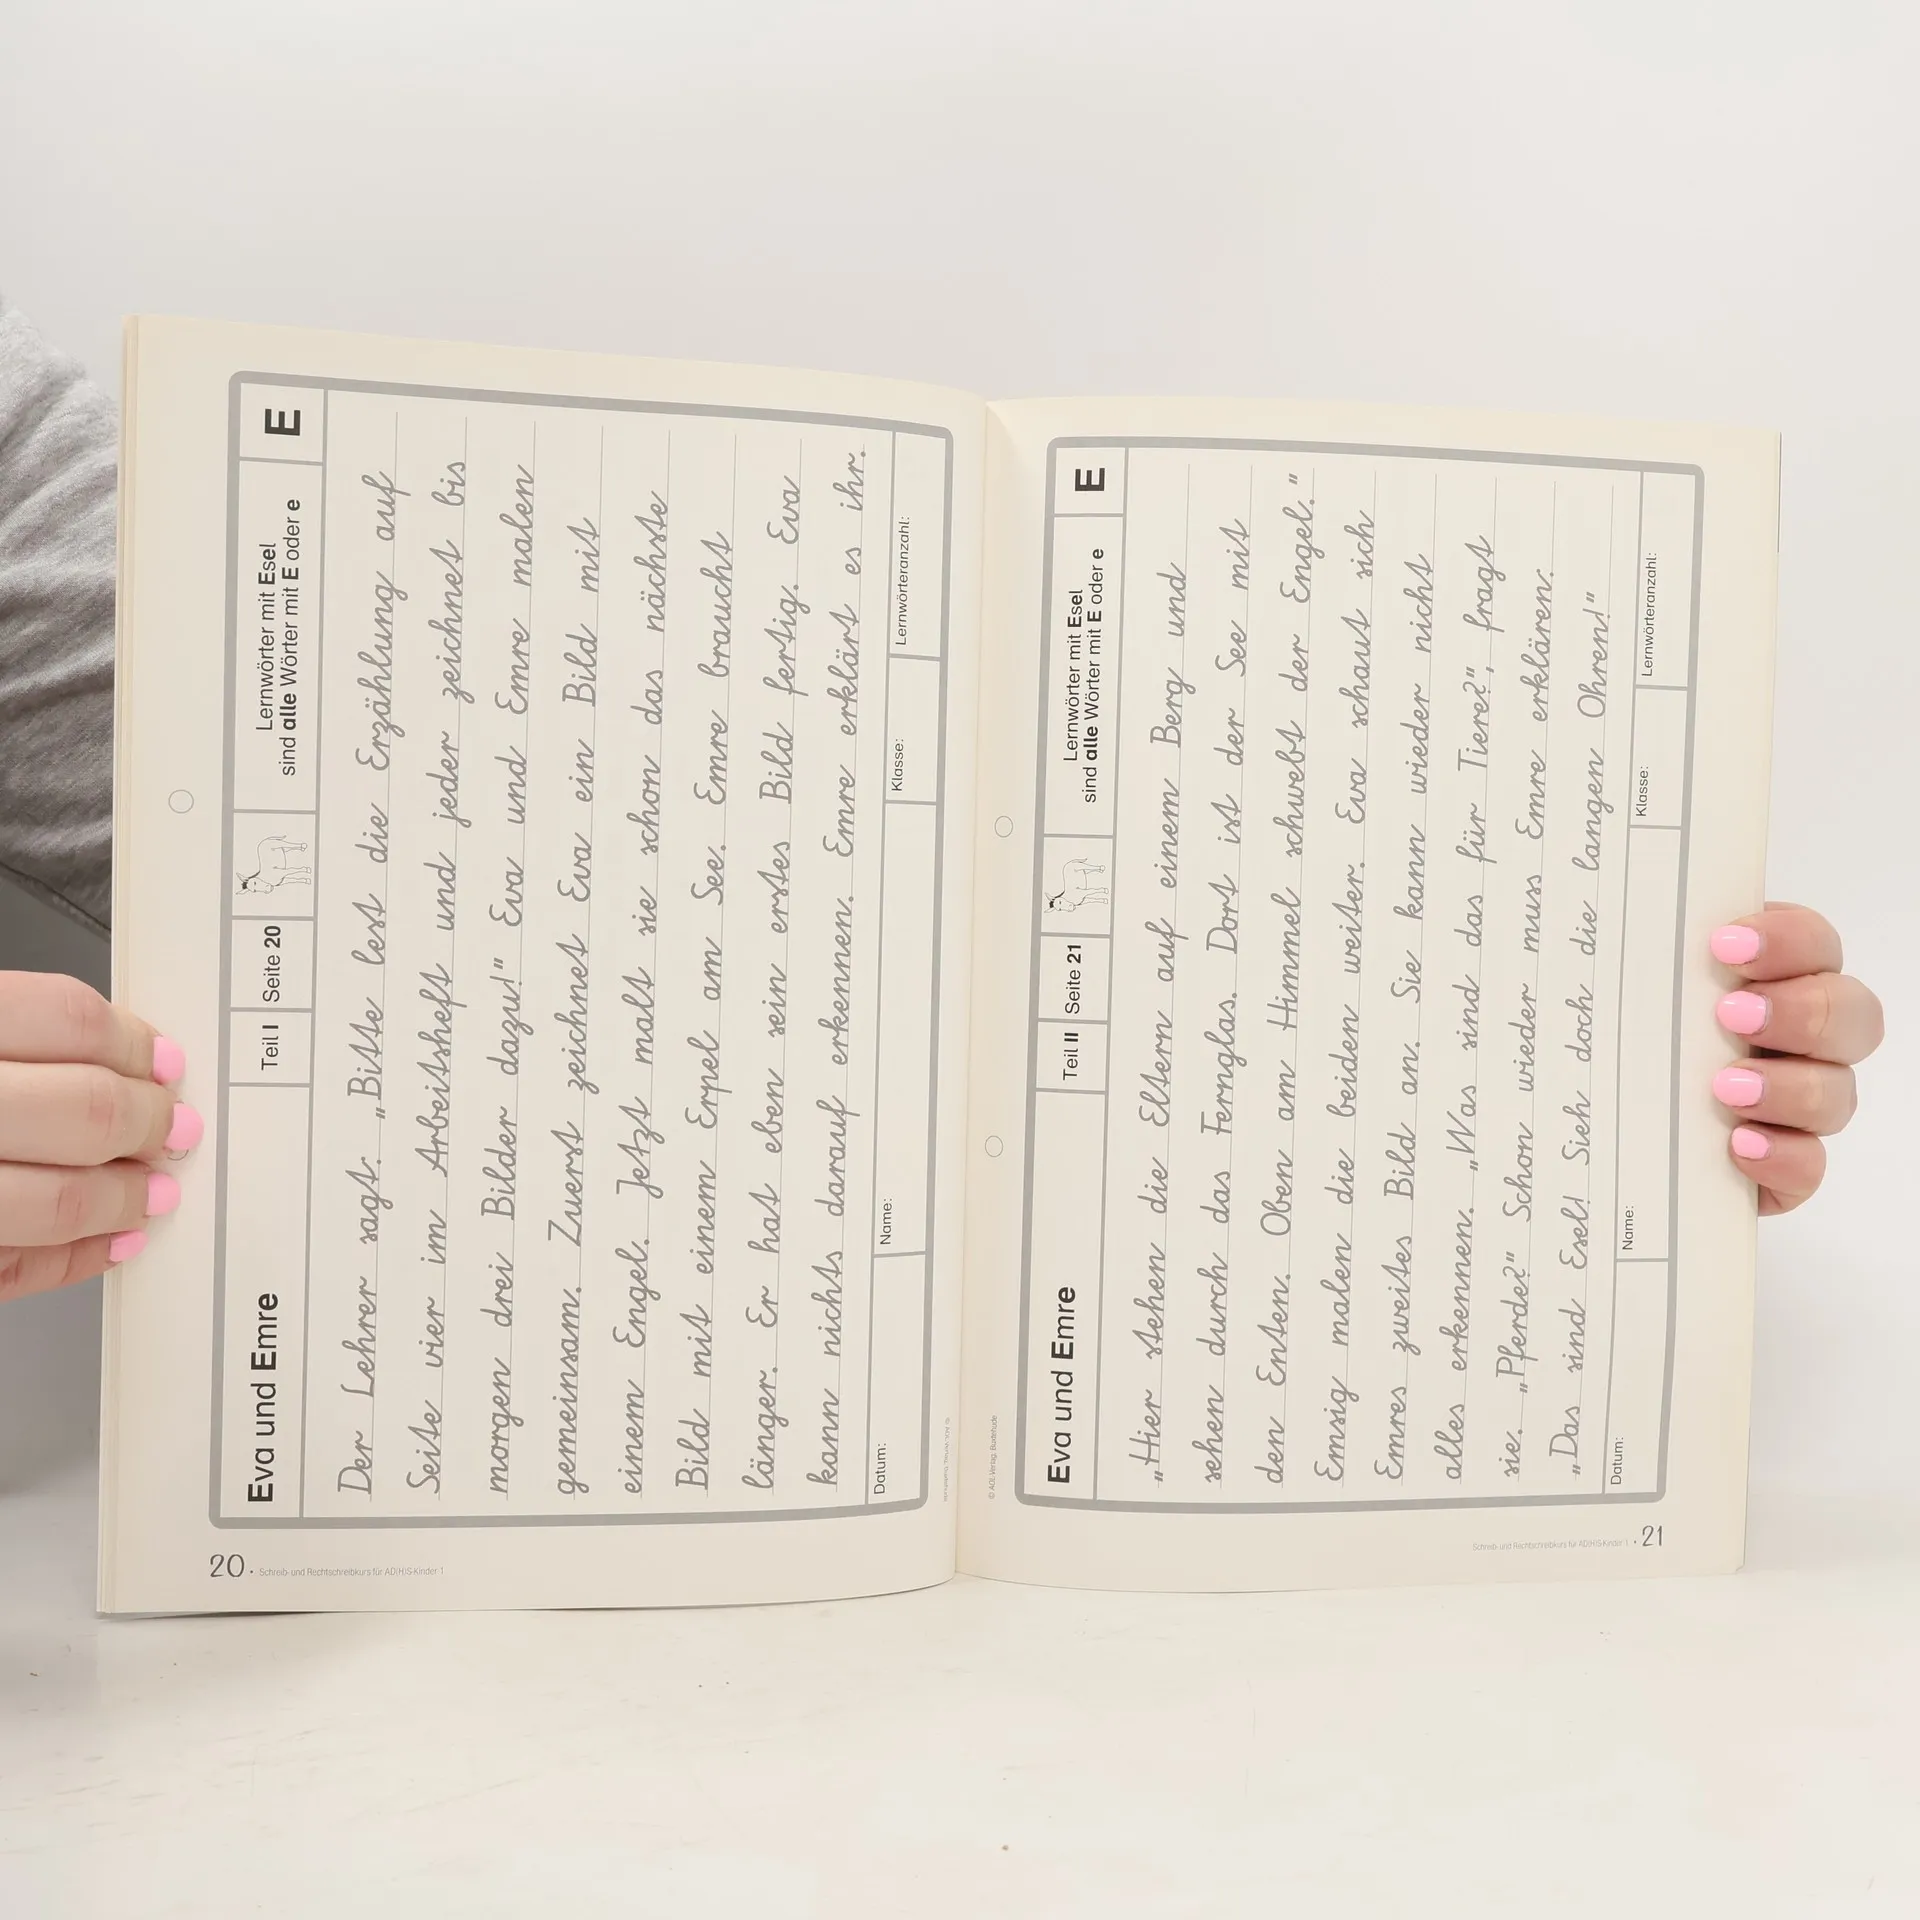 Eva und Emre
Teil I
Seite 20
Lernwörter mit Esel
sind alle Wörter mit E oder e
E
Der Lehrer sagt: „Bitte lest die Erzählung auf
Seite vier im Arbeitsheft und jeder zeichnet bis
morgen drei Bilder dazu!" Eva und Emre malen
gemeinsam. Zuerst zeichnet Eva ein Bild mit
einem Engel. Jetzt malt sie schon das nächste
Bild mit einem Erpel am See. Emre braucht
länger. Er hat eben sein erstes Bild fertig. Eva
kann nichts darauf erkennen. Emre erklärt es ihr.
Datum:
Name:
Klasse:
Lernwörteranzahl:
20 · Schreib- und Rechtschreibkurs für AD(H)S-Kinder 1
Eva und Emre
Teil II
Seite 21
Lernwörter mit Esel
sind alle Wörter mit E oder e
E
„Hier stehen die Eltern auf einem Berg und
sehen durch das Fernglas. Dort ist der See mit
den Enten. Oben am Himmel schwebt der Engel."
Emsig malen die beiden weiter. Eva schaut sich
Emres zweites Bild an. Sie kann wieder nicht
alles erkennen. „Was sind das für Tiere?", fragt
sie. „Pferde?" Schon wieder muss Emre erklären:
„Das sind Esel! Sieh doch die langen Ohren!"
Datum:
Name:
Klasse:
Lernwörteranzahl:
© AOL-Verlag, Buxtehude
Schreib- und Rechtschreibkurs für AD(H)S-Kinder 1 · 21